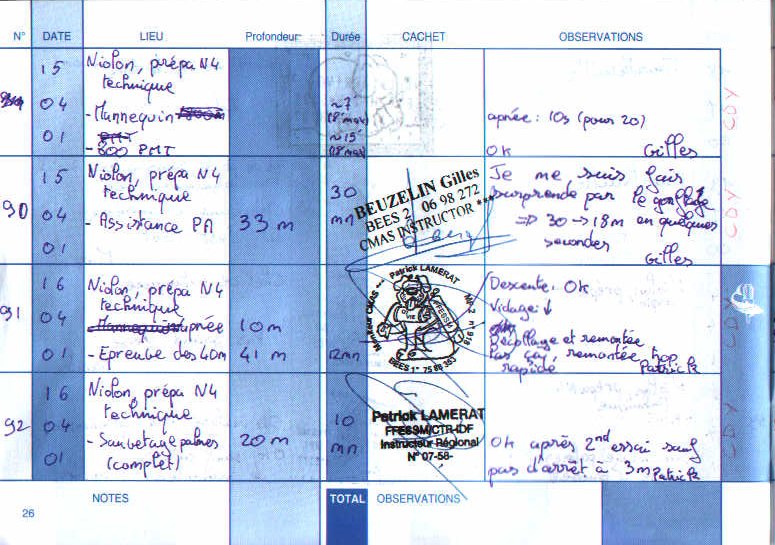 N° DATE LIEU Profondeur Durée CACHET OBSERVATIONS
15 04 01
Niolon, prépa N4
technique
- Mannequin
- 800 PMT
~7'
(8' max)
~15'
(18' max)
apnée : 10s (pour 20)
OK Gilles
90
15 04 01
Niolon, prépa N4
technique
- Assistance PA
33 m
30
mn
BEUZELIN Gilles
BEES 2 06 98 272
CMAS INSTRUCTOR ***
Je me suis fais
surprendre par le gonflage
=> 30 -> 18m en quelques
secondes
Gilles
91
16 04 01
Niolon, prépa N4
technique
- Apnée
10 m
- Epreuve des 40m
41 m
12mn
Patrick LAMERAT
Moniteur CMAS
FFESSM
BEES 1° 75 88 353
Descente : OK
Vidage : ↓
Décollage et remontée
pas çaj, remontée trop
rapide Patrick
92
16 04 01
Niolon, prépa N4
technique
- Sauvetage palmes
(complet)
20 m
10
mn
Patrick LAMERAT
FFESSM/CTR-IDF
Instructeur Régional
N° 07-58-
OK après 2nd essai sauf
pas d'arrêt à 3m Patrick
CDY
CDY
CDY
CDY
NOTES TOTAL OBSERVATIONS
26